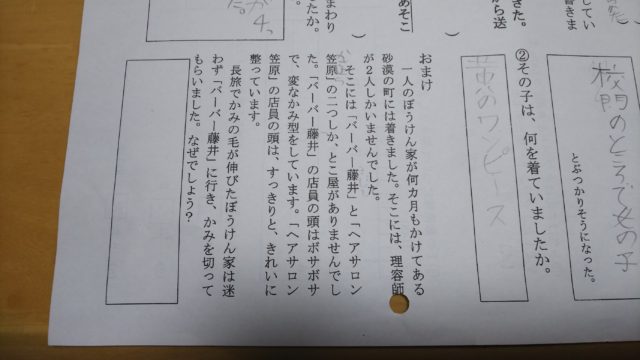 校門のところで女の子
とぶつかりそうになった。
②その子は、何を着ていましたか。
黄のワンピース
おまけ
一人のぼうけん家が何カ月もかけてある
砂漠の町には着きました。そこには、理容師
が２人しかいませんでした。
そこには「バーバー藤井」と「ヘアサロン
笠原」の二つしか、とこ屋がありませんでし
た。「バーバー藤井」の店員の頭はボサボサ
で、変なかみ型をしています。「ヘアサロン
笠原」の店員の頭は、すっきりと、きれいに
整っています。
長旅でかみの毛が伸びたぼうけん家は迷
わず「バーバー藤井」に行き、かみを切って
もらいました。なぜでしょう？